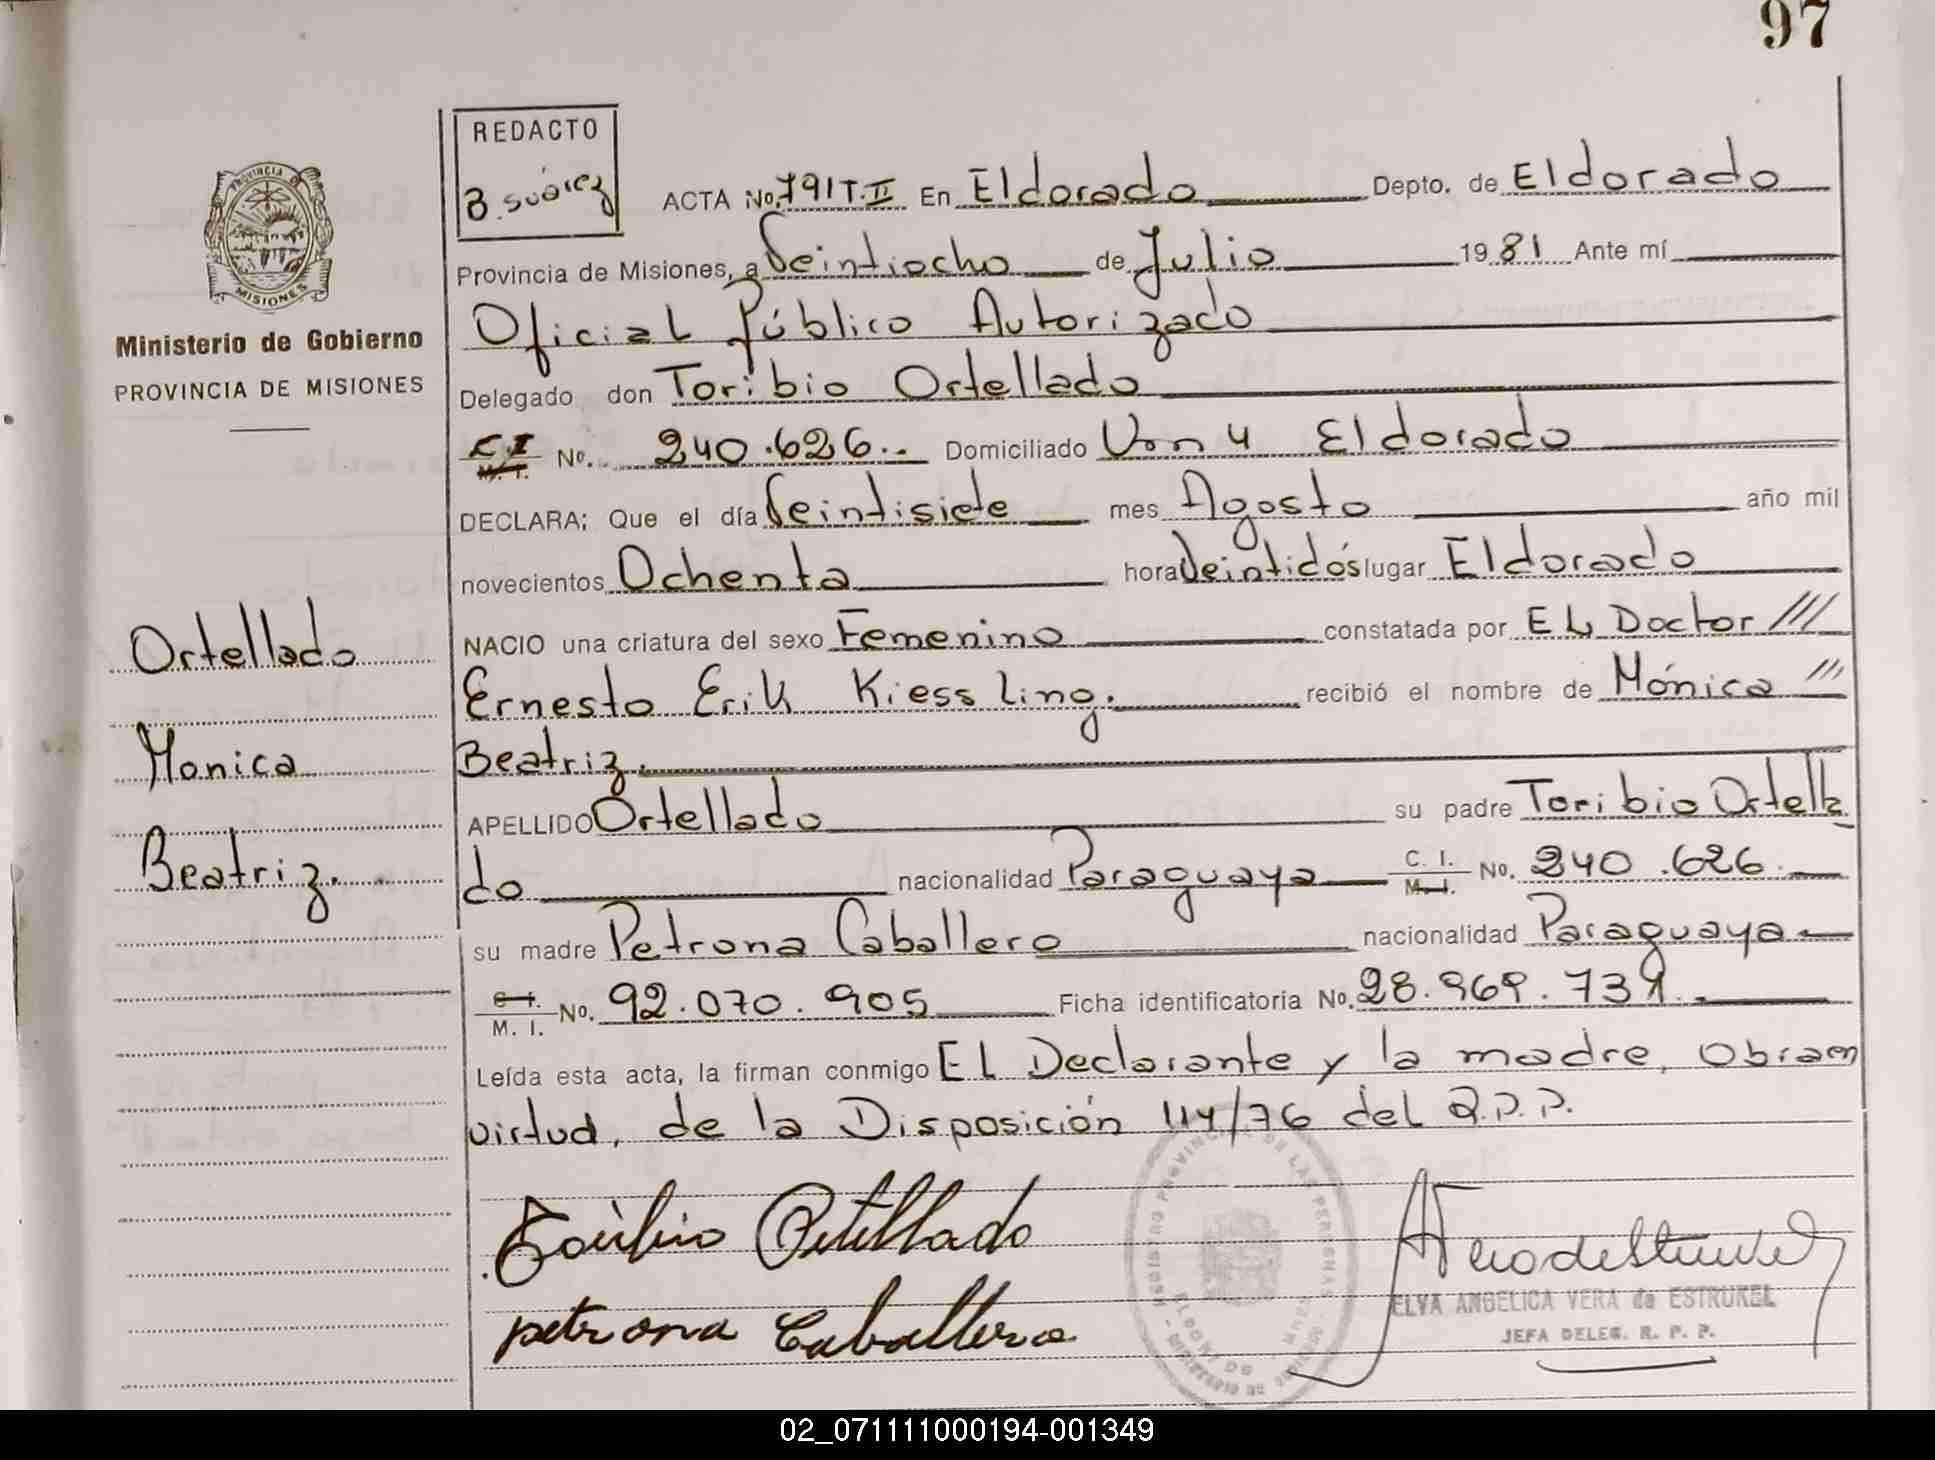 97
REDACTO
B. Suárez
ACTA No. 791 T. II En Eldorado Depto. de Eldorado
Provincia de Misiones, a Veintiocho de Julio 1981 Ante mí
Oficial Público Autorizado
Delegado don Toribio Ortellado
C.I. No. 240.626.- Domiciliado Eldorado
DECLARA: Que el día Veintisiete mes Agosto año mil
novecientos Ochenta hora Veintidós lugar Eldorado
NACIO una criatura del sexo Femenino constatada por EL Doctor ///
Ernesto Erik Kiessling. recibió el nombre de Mónica ///
Beatriz.
APELLIDO Ortellado su padre Toribio Ortella
do nacionalidad Paraguaya C. I. M. I. No. 240.626.
su madre Petrona Caballero nacionalidad Paraguaya
C. I. M. I. No. 92.070.905 Ficha identificatoria No.
Leída esta acta, la firman conmigo EL Declarante y la madre, Obra en
virtud, de la Disposición 114/76 del R.P.P.
Toribio Ortellado
petrona Caballero
ELVA ANGELICA VERA de ESTRUKEL
JEFA DELEG. R. P. P.
PROVINCIA DE
MISIONES
Ministerio de Gobierno
PROVINCIA DE MISIONES
Ortellado
Monica
Beatriz.
02_071111000194-001349